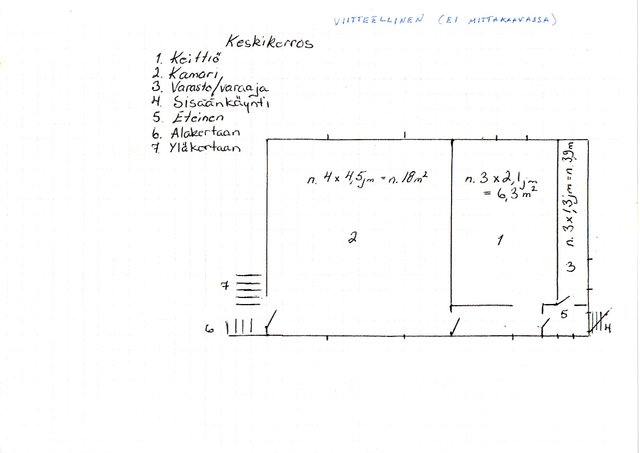 VIITTEELLINEN (EI MITTAKAAVASSA)
Keskikerros
1. Keittiö
2. Kamari
3. Varasto/varaaja
4. Sisäänkäynti
5. Eteinen
6. Alakertaan
7 Yläkertaan
n. 4 x 4,5jm = n. 18m²
n. 3 x 2,1jm
= 6,3m²
n. 3x1,3jm = n. 3,9m
2
1
3
7
5
6
4